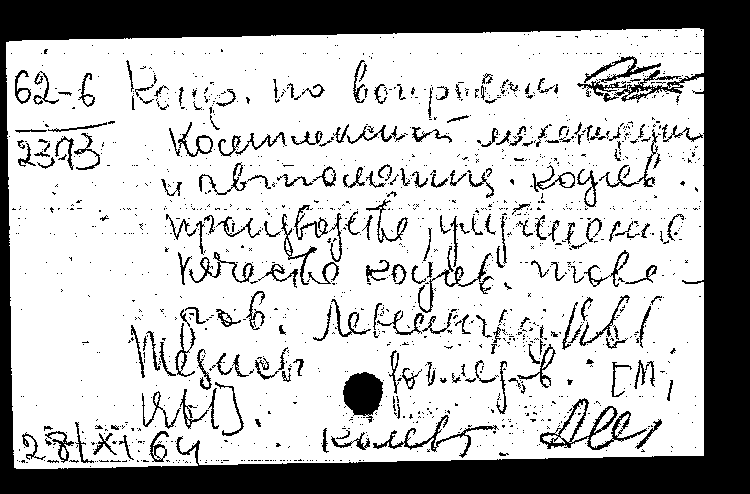 62-6 Конф. по вопросам
2393 Комплексной механизации
и автоматиз. кожев.
производства, улучшение
качества кожев. това-
ров. Ленинград, 1961
Тезисы докладов. [М.,
1961].
28/XI 64 Колект.